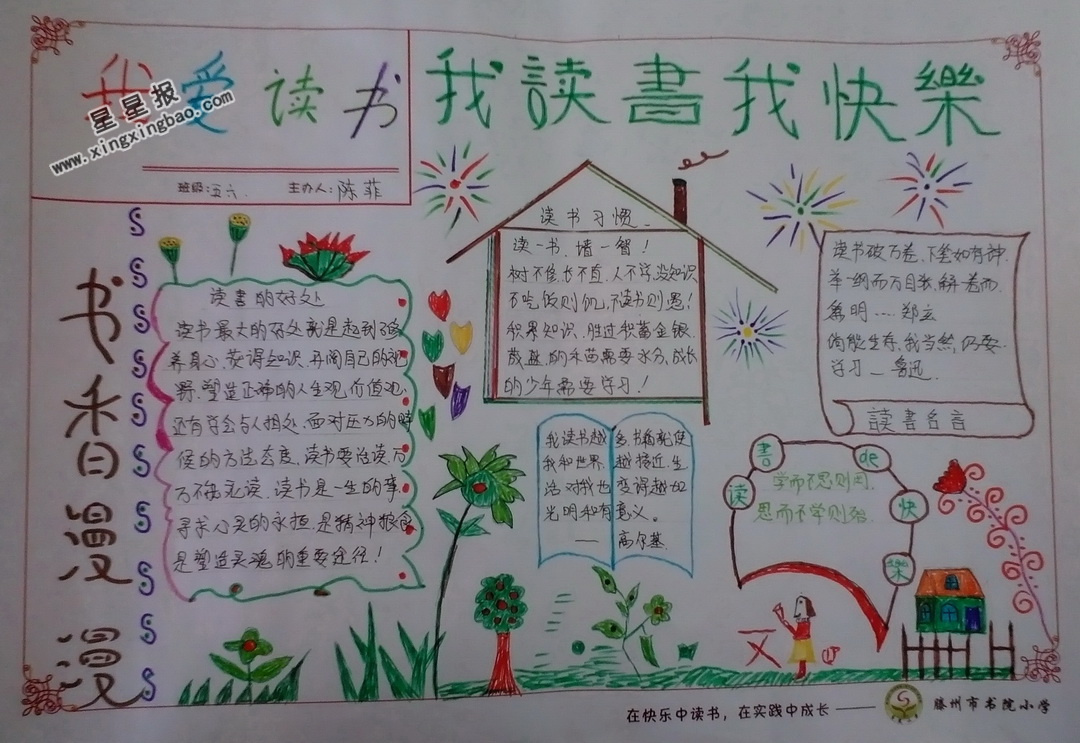 我爱读书
星星报
www.xingxingbao.com
班级:五六. 主办人:陈菲
我读書我快樂
书香漫漫
读書的好处
读书最大的好处就是起到了修
养身心,获得知识,开阔自己的视
野,塑造正确的人生观,价值观,
还有学会与人相处,面对压力的时
候的方法态度,读书要治读,万
万不能死读,读书是一生的事,
寻求心灵的永恒,是精神粮食
是塑造灵魂的重要途径!
读书习惯
读一书,增一智!
树不修,长不直,人不学,没知识
不吃饭则饥,不读书则愚!
积累知识,胜过积蓄金银
成盐的禾苗需要水分,成长
的少年需要学习!
我读书越多书籍就使
我和世界越接近,生
活对我也变得越加
光明和有意义。
——高尔基
读书破万卷,下笔如有神
举一纲而万目张,解一卷而
众篇明……郑玄
倘能生存,我当然仍要
学习—鲁迅
讀書名言
读書de快樂
学而不思则罔,
思而不学则殆.
文
在快乐中读书,在实践中成长——
滕州市书院小学